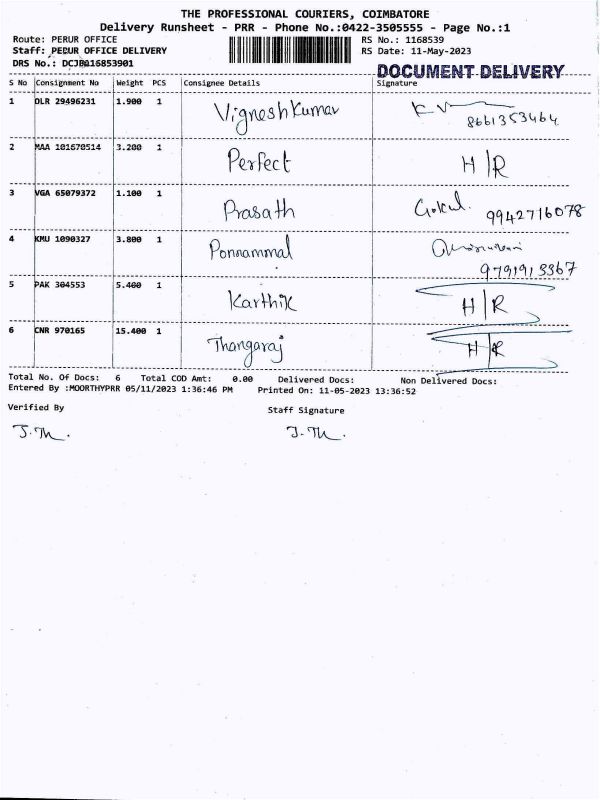 THE PROFESSIONAL COURIERS, COIMBATORE
Delivery Runsheet - PRR - Phone No.:0422-3505555 - Page No.:1
Route: PERUR OFFICE RS No.: 1168539
Staff: PERUR OFFICE DELIVERY RS Date: 11-May-2023
DRS No.: DCJBA16853901
DOCUMENT DELIVERY
S No Consignment No Weight PCS Consignee Details Signature
1 DLR 29496231 1.900 1 Vignesh Kumar
8661353464
2 MAA 101670514 3.200 1 Perfect H/R
3 VGA 65079372 1.100 1 Prasath Gokul 9942716078
4 KMU 1090327 3.800 1 Ponnammal
9791913367
5 PAK 304553 5.400 1 Karthik H/R
6 CNR 970165 15.400 1 Thangaraj H/R
Total No. Of Docs: 6 Total COD Amt: 0.00 Delivered Docs: Non Delivered Docs:
Entered By :MOORTHYPRR 05/11/2023 1:36:46 PM Printed On: 11-05-2023 13:36:52
Verified By Staff Signature
J.Th. J.Th.